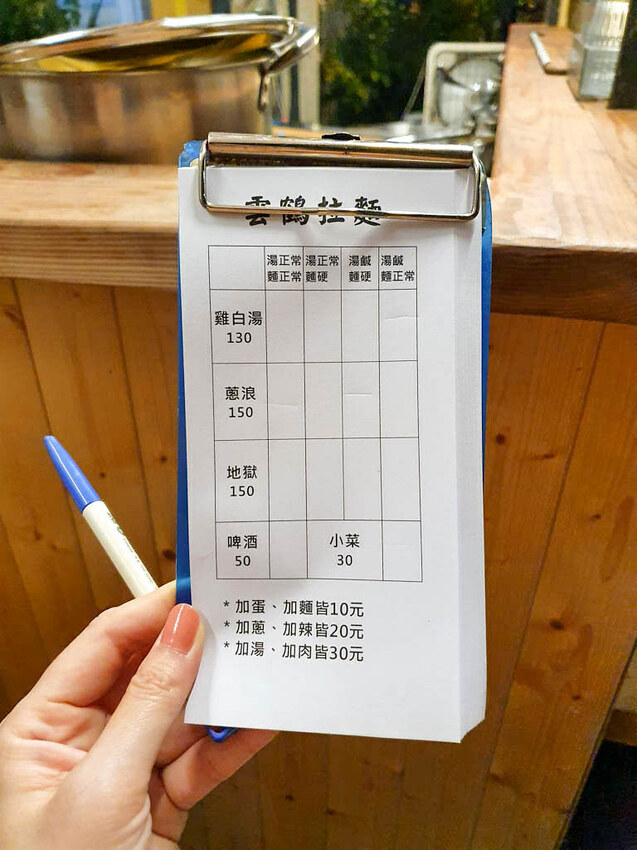 雲鶴拉麵
湯正常 湯正常 湯鹹 湯鹹
麵正常 麵硬 麵硬 麵正常
雞白湯
130
蔥浪
150
地獄
150
啤酒 小菜
50 30
* 加蛋、加麵皆10元
* 加蔥、加辣皆20元
* 加湯、加肉皆30元